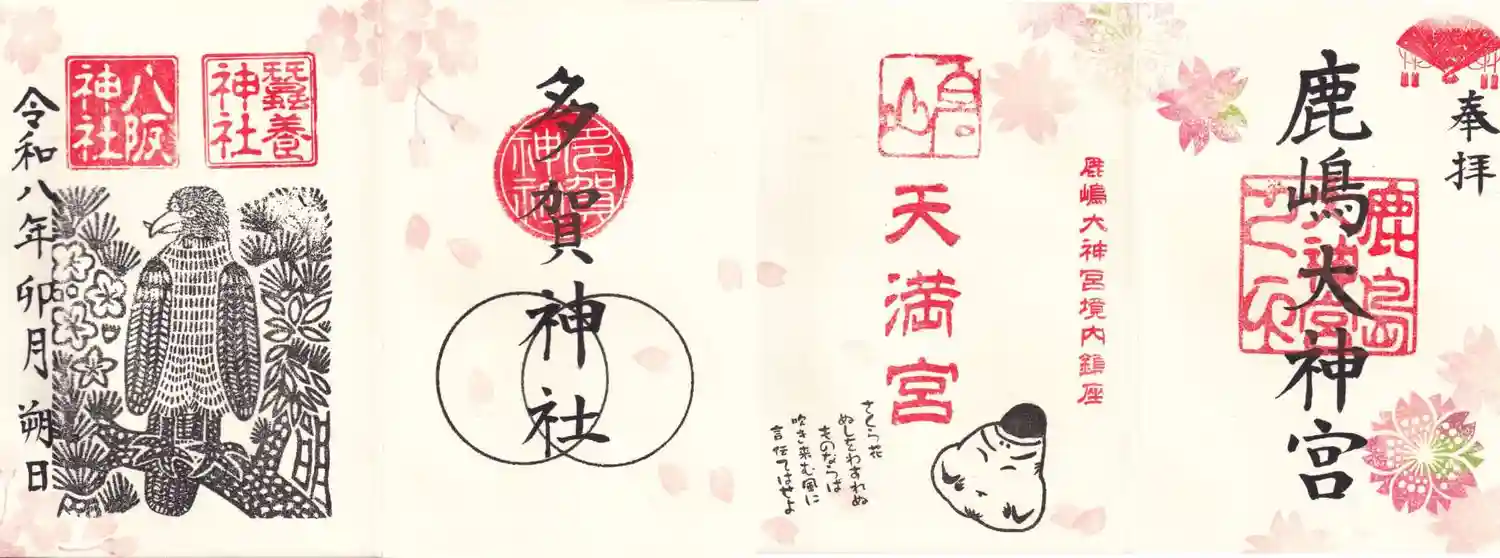 奉拝
鹿嶋大神宮
鹿島神宮
鹿嶋大神宮境内鎮座
天満宮
さくら花
ぬしをわすれぬ
ものならば
吹き来む風に
言伝てはせよ
多賀神社
多賀神社
蠶養神社
八阪神社
令和八年卯月朔日